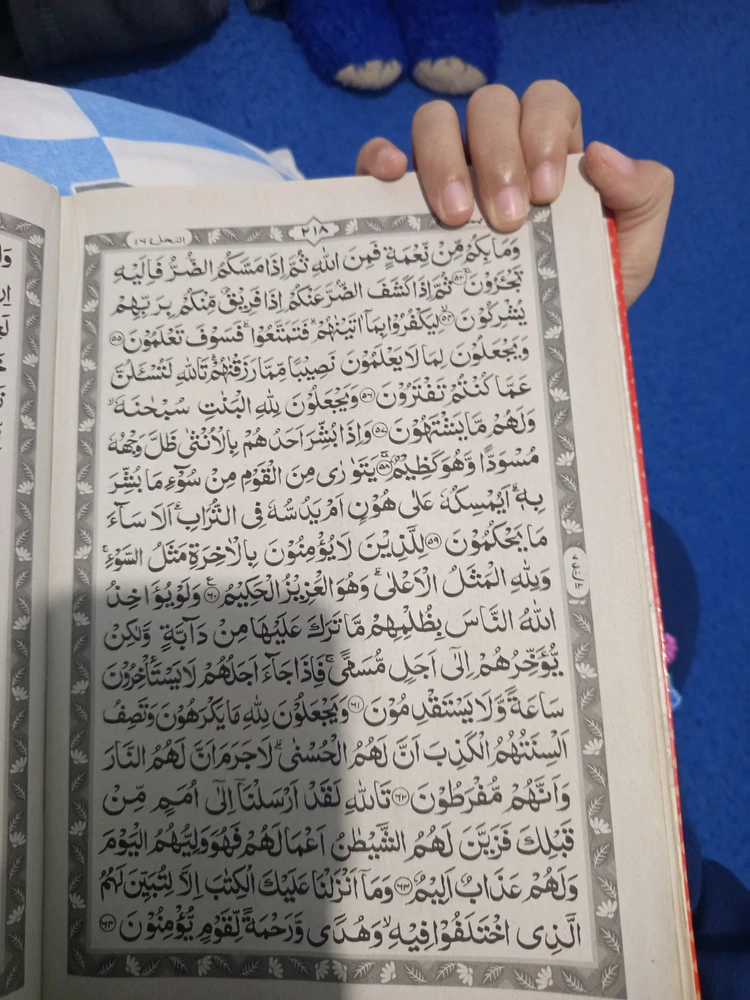 النحل ١٦
٢١٨
وَمَا بِكُمْ مِّنْ نِّعْمَةٍ فَمِنَ اللّٰهِ ثُمَّ اِذَا مَسَّكُمُ الضُّرُّ فَاِلَيْهِ
تَجْـَٔرُوْنَ ۚ‏﴿۵۳﴾ ثُمَّ اِذَا كَشَفَ الضُّرَّ عَنْكُمْ اِذَا فَرِيْقٌ مِّنْكُمْ بِرَبِّهِمْ
يُشْرِكُوْنَ ۙ‏﴿۵۴﴾ لِيَكْفُرُوْا بِمَاۤ اٰتَيْنٰهُمْ ؕ فَتَمَتَّعُوْا ۥ فَسَوْفَ تَعْلَمُوْنَ ﴿۵۵﴾
وَيَجْعَلُوْنَ لِمَا لَا يَعْلَمُوْنَ نَصِيْبًا مِّمَّا رَزَقْنٰهُمْ ؕ تَاللّٰهِ لَتُسْـَٔلُنَّ
عَمَّا كُنْتُمْ تَفْتَرُوْنَ ﴿۵۶﴾ وَيَجْعَلُوْنَ لِلّٰهِ الْبَنٰتِ سُبْحٰنَهٗ ۙ
وَلَهُمْ مَّا يَشْتَهُوْنَ ﴿۵۷﴾ وَاِذَا بُشِّرَ اَحَدُهُمْ بِالْاُنْثٰى ظَلَّ وَجْهُهٗ
مُسْوَدًّا وَّهُوَ كَظِيْمٌ ۚ‏﴿۵۸﴾ يَتَوَارٰى مِنَ الْقَوْمِ مِنْ سُوْٓءِ مَا بُشِّرَ
بِهٖ ؕ اَيُمْسِكُهٗ عَلٰى هُوْنٍ اَمْ يَدُسُّهٗ فِى التُّرَابِ ؕ اَلَا سَآءَ
مَا يَحْكُمُوْنَ ﴿۵۹﴾ لِلَّذِيْنَ لَا يُؤْمِنُوْنَ بِالْاٰخِرَةِ مَثَلُ السَّوْءِ ۚ
وَلِلّٰهِ الْمَثَلُ الْاَعْلٰى ؕ وَهُوَ الْعَزِيْزُ الْحَكِيْمُ ﴿۶۰﴾ وَلَوْ يُؤَاخِذُ
اللّٰهُ النَّاسَ بِظُلْمِهِمْ مَّا تَرَكَ عَلَيْهَا مِنْ دَآبَّةٍ وَّلٰكِنْ
يُّؤَخِّرُهُمْ اِلٰٓى اَجَلٍ مُّسَمًّى ۚ فَاِذَا جَآءَ اَجَلُهُمْ لَا يَسْتَاْخِرُوْنَ
سَاعَةً وَّلَا يَسْتَقْدِمُوْنَ ﴿۶۱﴾ وَيَجْعَلُوْنَ لِلّٰهِ مَا يَكْرَهُوْنَ وَتَصِفُ
اَلْسِنَتُهُمُ الْكَذِبَ اَنَّ لَهُمُ الْحُسْنٰى ؕ لَا جَرَمَ اَنَّ لَهُمُ النَّارَ
وَاَنَّهُمْ مُّفْرَطُوْنَ ﴿۶۲﴾ تَاللّٰهِ لَقَدْ اَرْسَلْنَاۤ اِلٰٓى اُمَمٍ مِّنْ
قَبْلِكَ فَزَيَّنَ لَهُمُ الشَّيْطٰنُ اَعْمَالَهُمْ فَهُوَ وَلِيُّهُمُ الْيَوْمَ
وَلَهُمْ عَذَابٌ اَلِيْمٌ ﴿۶۳﴾ وَمَاۤ اَنْزَلْنَا عَلَيْكَ الْكِتٰبَ اِلَّا لِتُبَيِّنَ لَهُمُ
الَّذِى اخْتَلَفُوْا فِيْهِ ۙ وَهُدًى وَّرَحْمَةً لِّقَوْمٍ يُّؤْمِنُوْنَ ﴿۶۴﴾